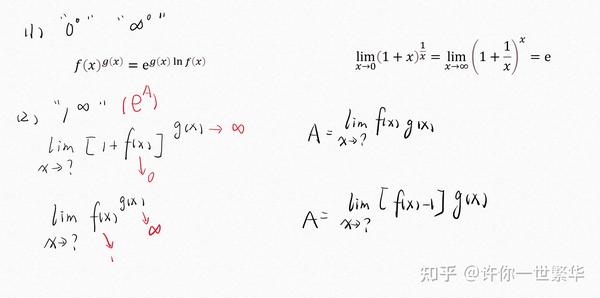 (1) "0⁰" "∞⁰"
f(x)^{g(x)} = e^{g(x) ln f(x)}
lim_{x→0} (1 + x)^{1/x} = lim_{x→∞} (1 + 1/x)^x = e
(2) "1^∞" (e^A)
lim_{x→?} [1+f(x)]^{g(x)→∞}
↓0
A = lim_{x→?} f(x) g(x)
lim_{x→?} f(x)^{g(x)}
↓∞
↓1
A = lim_{x→?} [f(x)-1] g(x)
知乎 @许你一世繁华